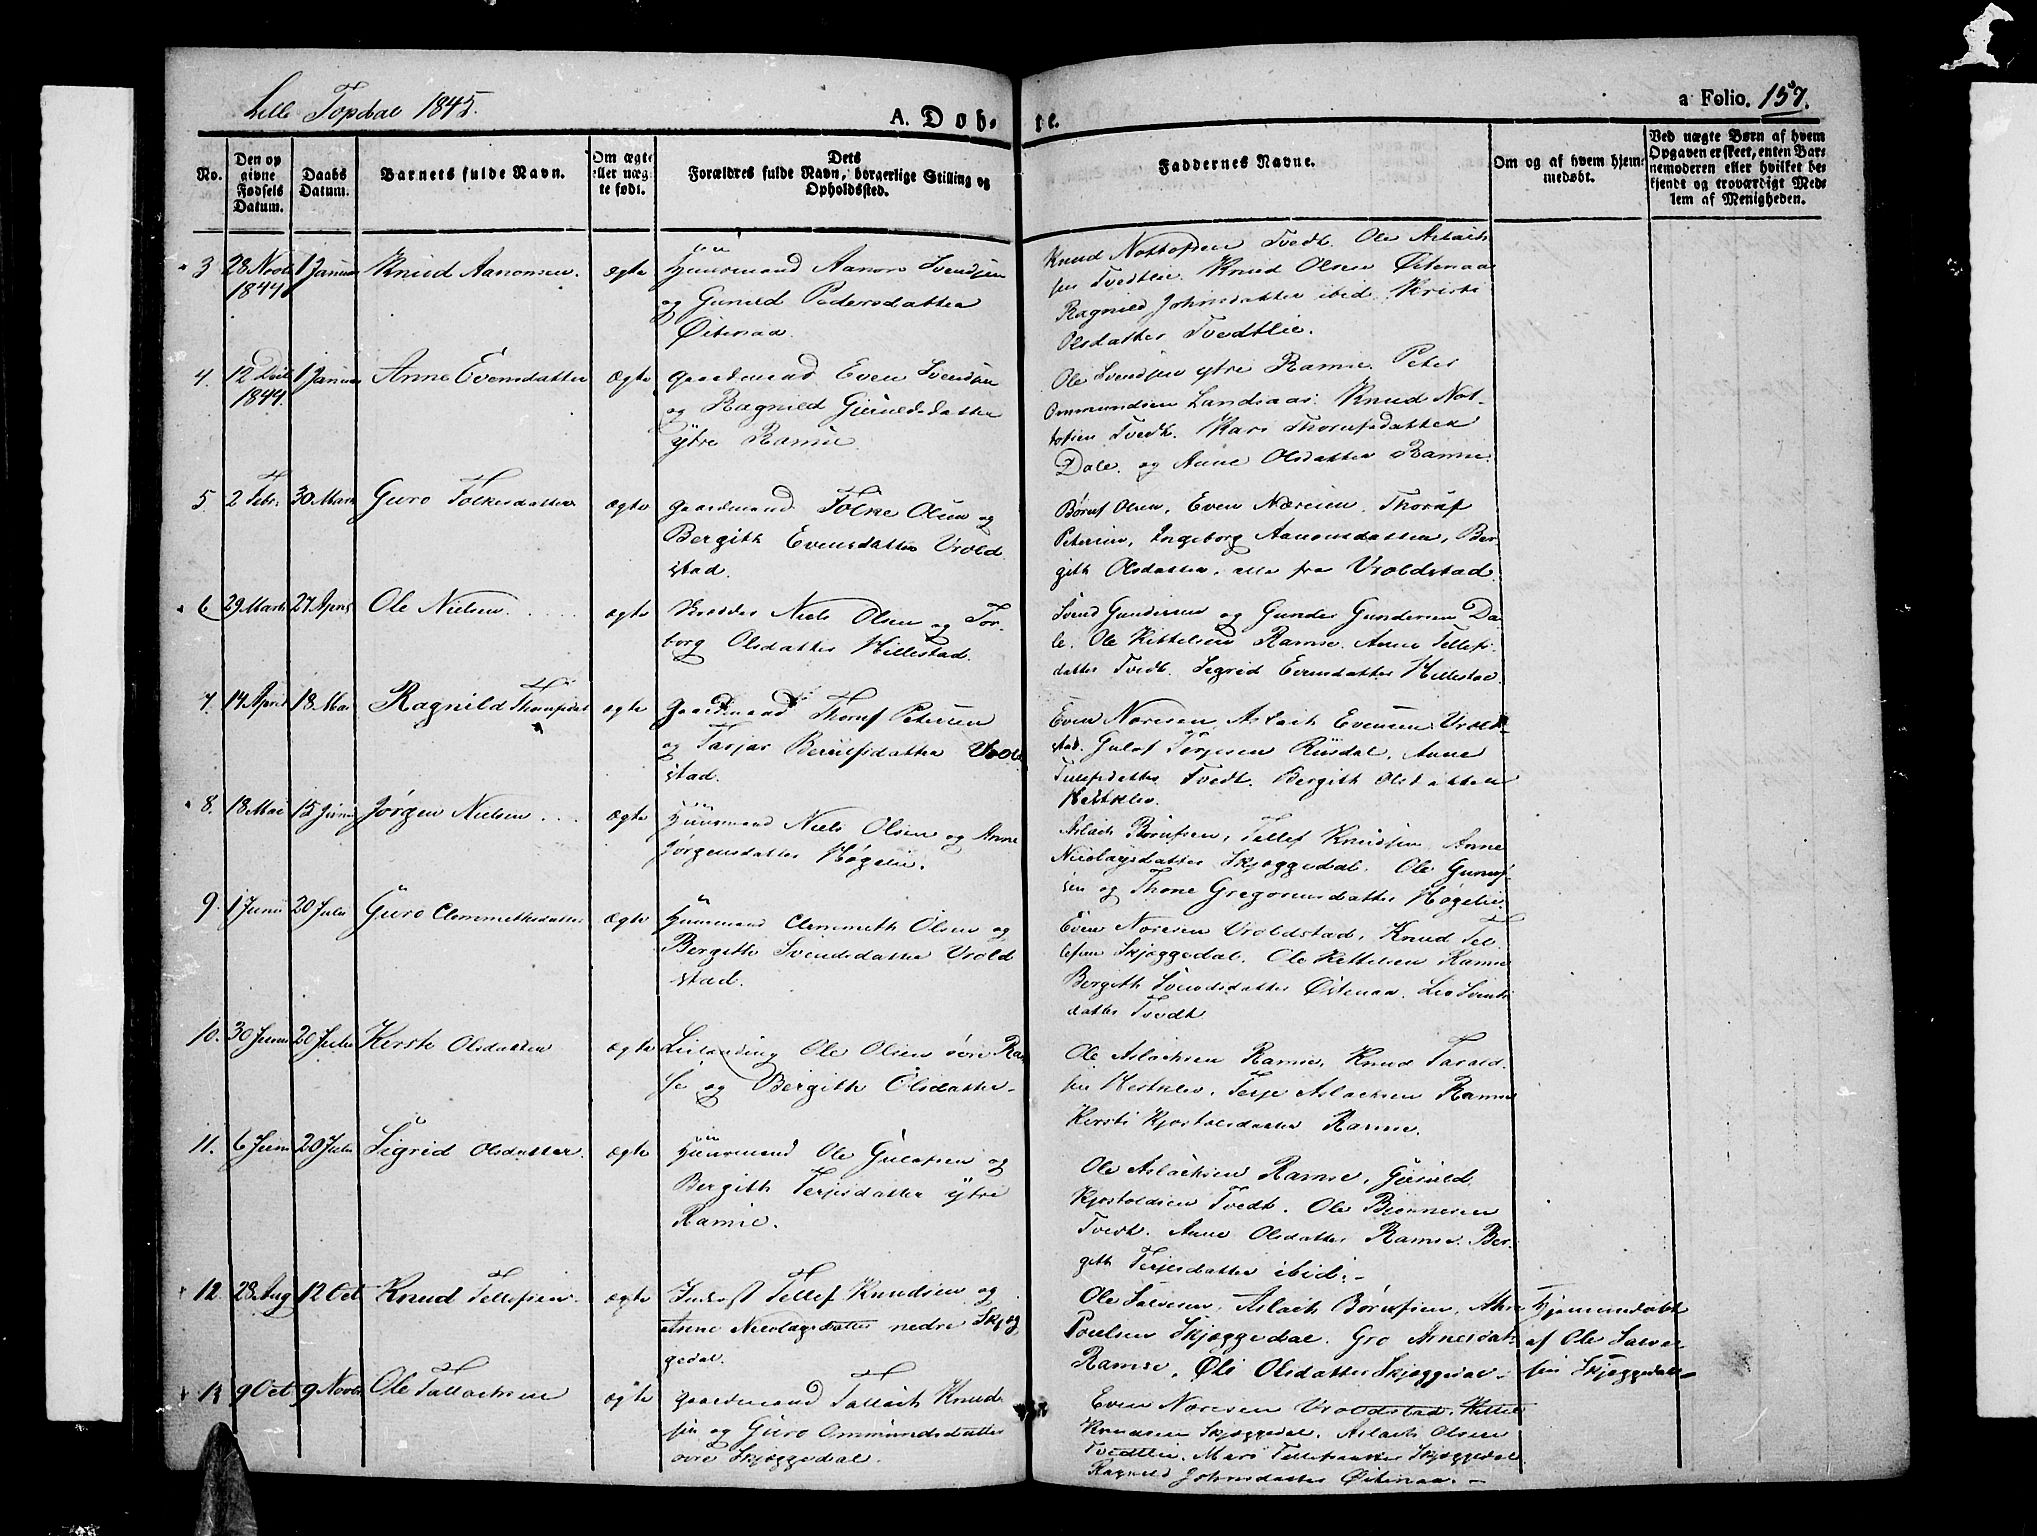 Lille Topdal 1845.
A. Døb-
te.
a Folio. 157.
No.
Den op
givne
Fødsels
Datum.
Daabs
Datum.
Barnets fulde Navn.
Om ægte
eller uæg
te født.
Dets
Forældres fulde Navn, borgerlige Stilling og
Opholdssted.
Faddernes Navne.
Om og af hvem hjem-
medøbt.
Ved uægte Børn af hvem
Opgaven er skeet, enten Bar-
nemoderen eller hvilket be-
kjendt og troværdigt Med-
lem af Menigheden.
3 28 Novb 1 Januar Knud Aanonsen. ægte Huusmand Aanon Svendsen
1844
og Gunild Pedersdatter
Østenaa.
Knud Nottofsen Tvedt. Ole Aslach
sen Tvedtlie. Knud Olsen Østenaa
Ragnild Johnsdatter ibid. Kristi
Olsdatter Tvedtlie.
4. 12 Decb 1 Januar Anne Evensdatter ægte Gaardmand Even Svendsen
1844.
og Ragnild Gjeruldsdatter
ytre Ramse.
Ole Svendsen ytre Ramse. Peter
Ommundsen Landsaas. Knud Not-
tofsen Tvedt. Kari Thorufsdatter
Dale. og Anne Olsdatter Ramse.
5 2 Febr. 30 Marts Guro Folkesdatter ægte Gaardmand Folke Olsen og
Bergith Evensdatter Vrold
stad.
Børuf Olsen, Even Noresen. Thoruf
Petersen, Ingeborg Aanonsdatter, Ber-
gith Olsdatter, alle fra Vroldstad.
6 29 Marts 27 April Ole Nielsen. ægte Niels Olsen og Tor-
borg Olsdatter Hillestad.
Svend Gundersen og Gunder Gundersen Da-
le. Ole Kittelsen Ramse. Anne Tellefs-
datter Tvedt. Sigrid Evensdatter Hillestad.
7. 14 April 18 Mai Ragnild Thorufsdat ægte Gaardmand Thoruf Petersen
og Tarjer Berulfsdatter Vrold
stad.
Even Noresen Aslach Evensen Vrold-
stad. Gulof Terjesen Rusdal, Anne
Tellefsdatter Tvedt. Bergith Olsdatter
Hestklev.
8. 18 Mai 15 Juni Jørgen Nielsen ægte Huusmand Niels Olsen og Anne
Jørgensdatter Høgelie.
Aslach Børufsen, Tellef Knudsen Anne
Nicolaysdatter Skjæggedal. Ole Gunuf-
sen og Thone Gregoriusdatter Høgelie.
9. 1 Juni 20 Juli Guro Clemmethsdatter ægte Huusmand Clemmeth Olsen og
Bergithe Svendsdatter Vrold
stad.
Even Noresen Vroldstad, Knud Tel-
lefsen Skjæggedal. Ole Kittelsen Ramse
Bergith Svendsdatter Østenaa. Liv Svends
datter Tvedt
10. 30 Juni 20 Juli Kersti Olsdatter ægte Leilænding Ole Olsen øvre Ram
se og Bergith Olsdatter-
Ole Aslachsen Ramse, Knud Tarald-
sen Hestklev. Terje Aslachsen Ramse
Kersti Kjostolsdatter Ramse.
11. 6 Juni 20 Juli Sigrid Olsdatter. ægte Huusmand Ole Gulofsen og
Bergith Terjesdatter ytre
Ramse.
Ole Aslachsen Ramse, Gjeruld
Kjostoldsen Tvedt. Ole Bjønnesen
Tvedt. Anne Olsdatter Ramse. Ber-
gith Terjesdatter ibid.-
12 28 Aug 12 Oct Knud Tellefsen ægte Inderst Tellef Knudsen og
Anne Nicolaysdatter nedre Skjæg
gedal.
Ole Salvesen, Aslach Børufsen,
Poulsen Skjæggedal. Gro Arnesdat-
Ramse, Øli Olsdatter Skjæggedal-
Hjemmedøbt
af Ole Salve
sen Skjæggedal-
13 9 Oct 9 Novb Ole Tallachsen ægte Gaardmand Tallach Knud-
sen og Guro Ommundsdatter
øvre Skjæggedal.
Even Noresen Vroldstad, Kittel
Knudsen Skjæggedal. Aslach Olsen
Tvedtlie. Mari Tellefsdatter Skjæggedal
Ragnild Johnsdatter Østenaa.-